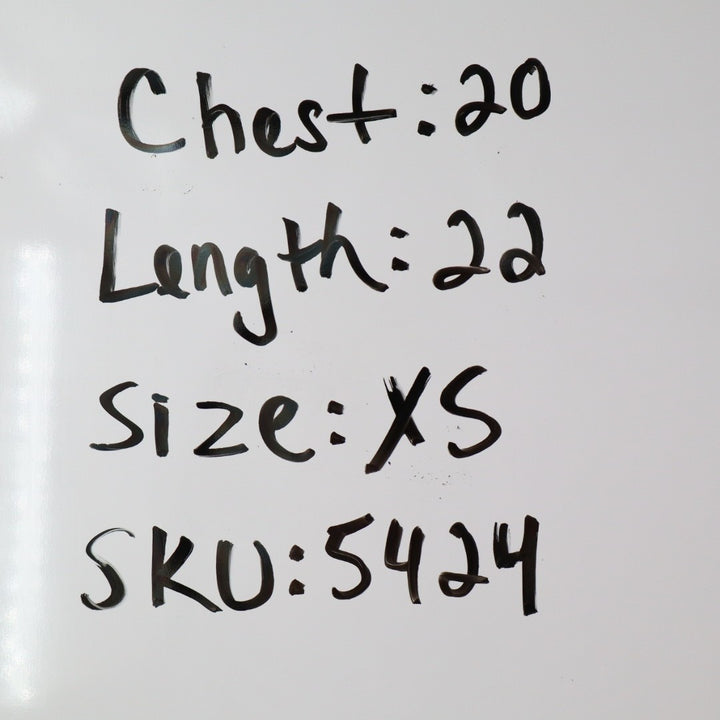 Chest:20
Length:22
Size:XS
SKU:5424